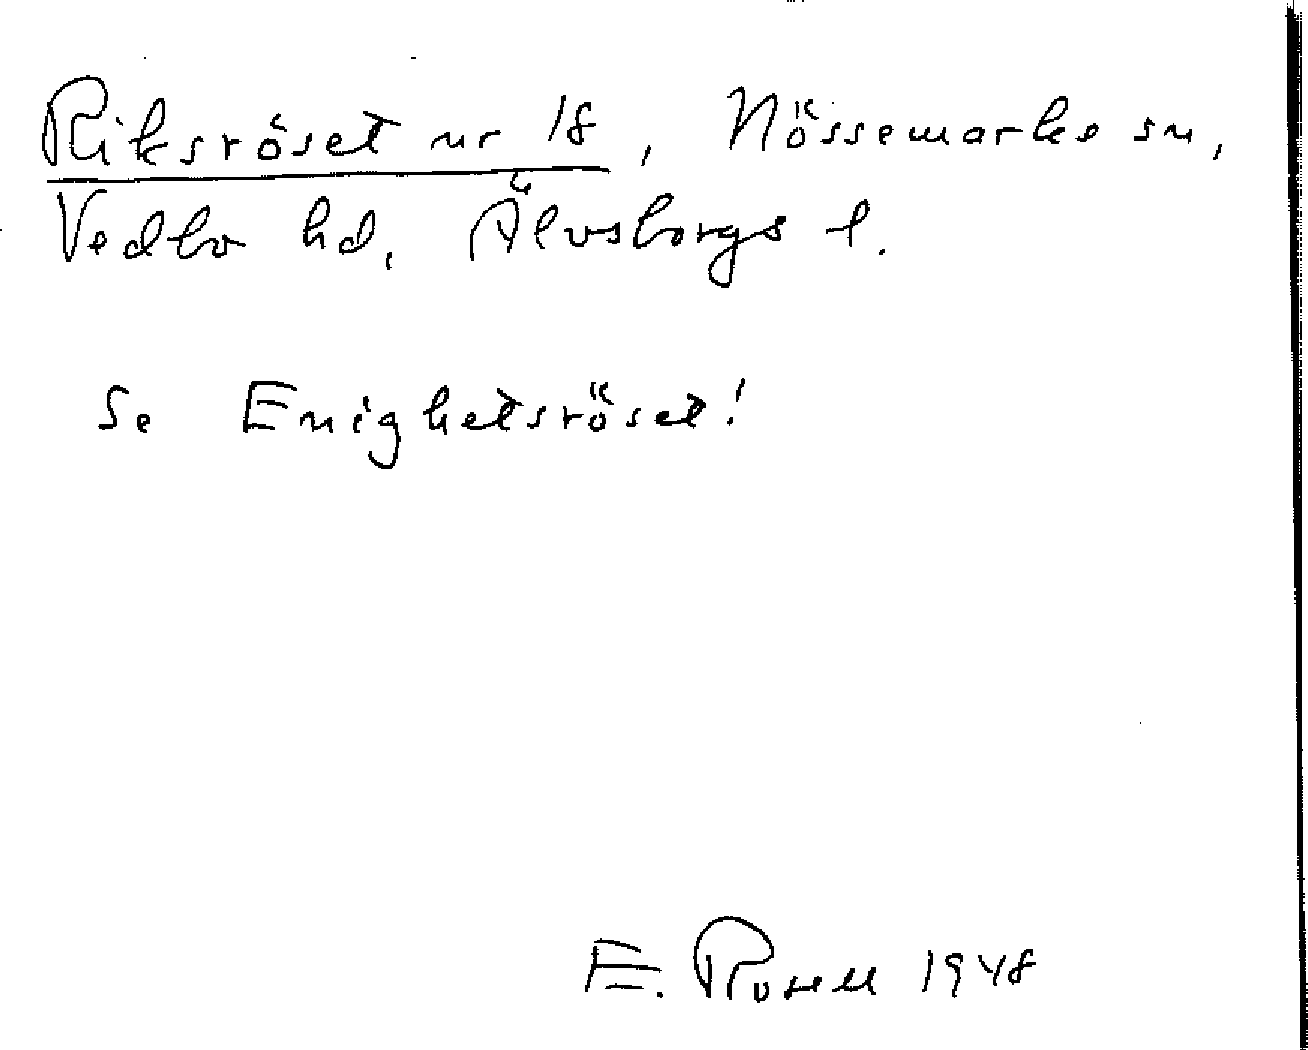 Riksröset nr 18, Nössemarks sn,
Vedbo hd, Älvsborgs l.
Se Enighetsröset!
E. Rosell 1948